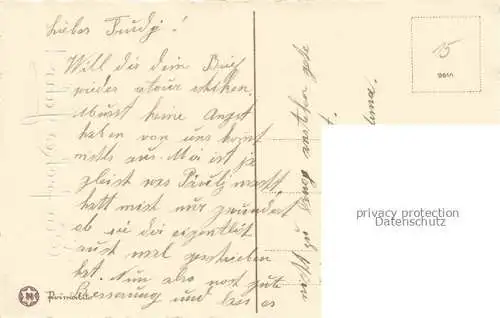 Liebes Trudy!
Will dir dein Brief
wieder retour schicken.
Musst keine Angst
haben von uns kommt
nichts aus. Mir ist ja
gleich was Pauly macht
hatt mich nur gewundert
ob sie dir eigentlich
auch mal geschrieben
hat. Nun also noch gute
Besserung und lass es
nicht zu lang anstehn
15
9611
privacy protection
Datenschutz
Primula